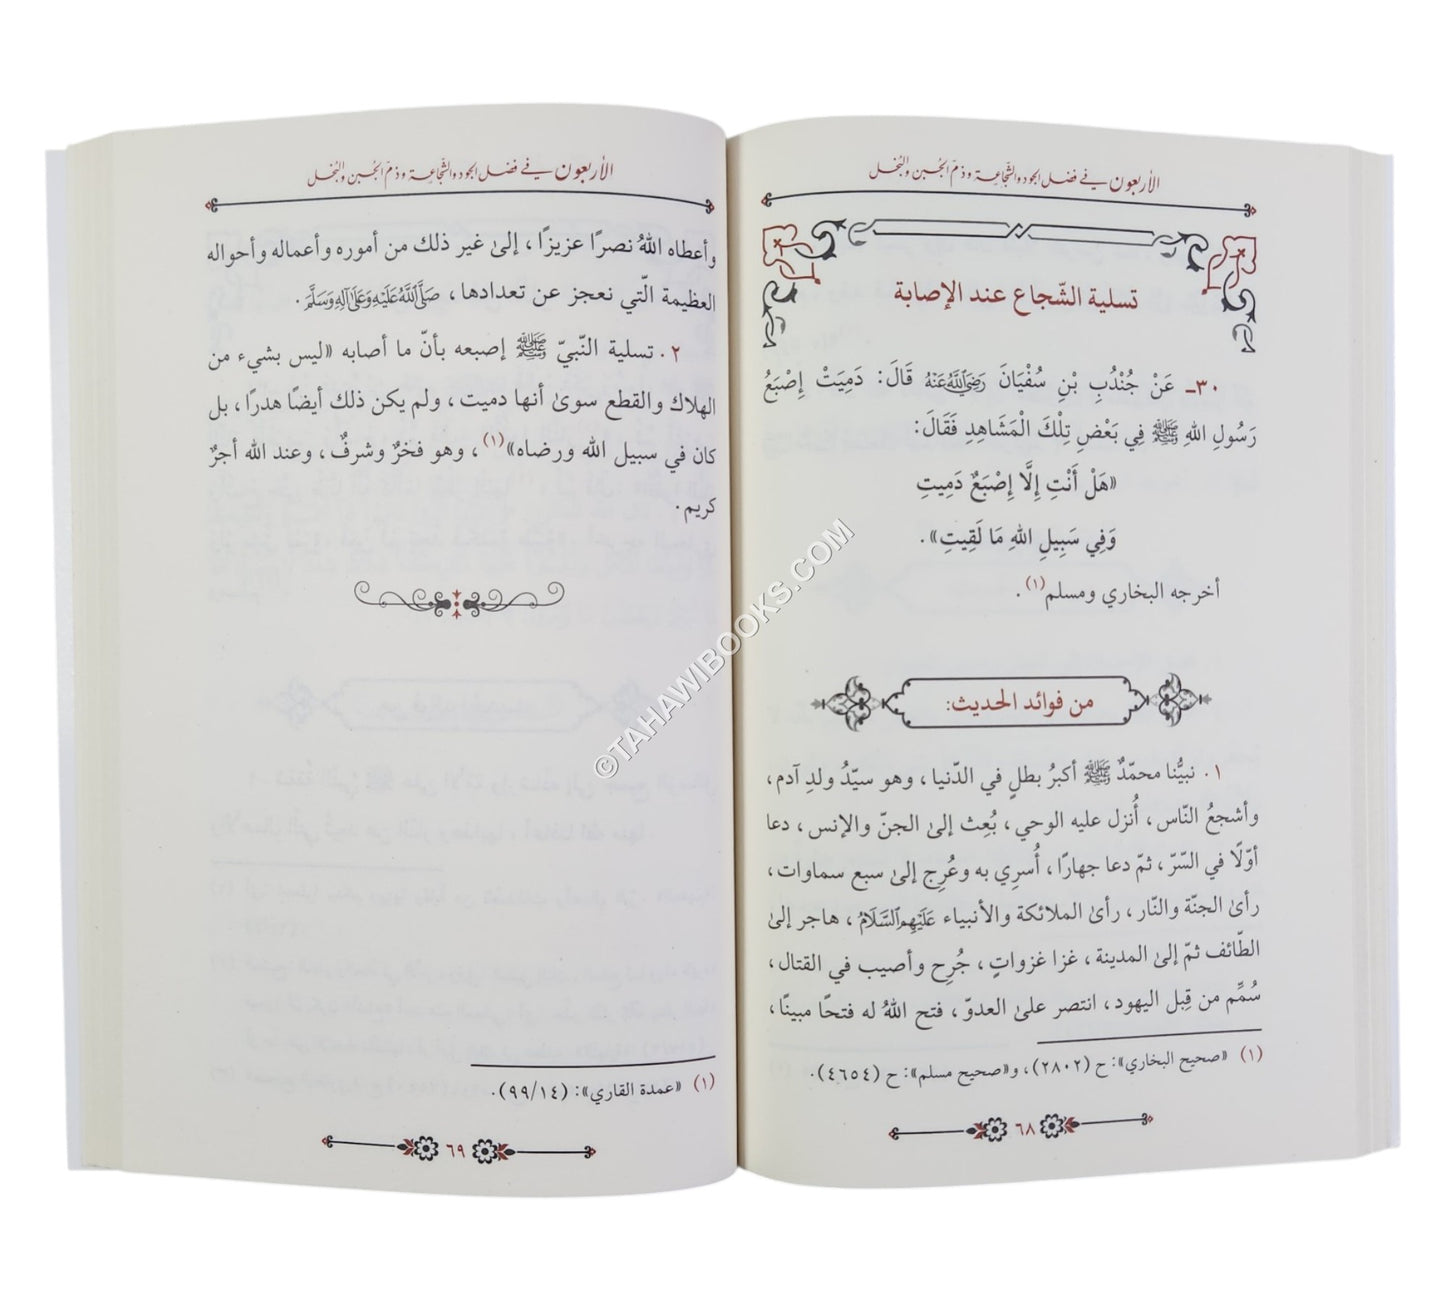 الأربعون في فضل الجود والشّجاعة وذمّ الجُبن والبُخل
تسلية الشّجاع عند الإصابة
٣٠ـ عَنْ جُنْدُبِ بْنِ سُفْيَانَ رَضِيَ اللَّهُ عَنْهُ قَالَ: دَمِيَتْ إِصْبَعُ
رَسُولِ اللهِ ﷺ فِي بَعْضِ تِلْكَ الْمَشَاهِدِ فَقَالَ:
«هَلْ أَنْتِ إِلَّا إِصْبَعٌ دَمِيتِ
وَفِي سَبِيلِ اللهِ مَا لَقِيتِ».
أخرجه البخاري ومسلم(١).
من فوائد الحديث:
١. نبيُّنا محمّدٌ ﷺ أكبرُ بطلٍ في الدّنيا، وهو سيّدُ ولدِ آدم،
وأشجعُ النّاس، أُنزل عليه الوحي، بُعِث إلىٰ الجنّ والإنس، دعا
أوّلًا في السّرّ، ثمّ دعا جهارًا، أُسرِي به وعُرِج إلىٰ سبع سماوات،
رأىٰ الجنّة والنّار، رأىٰ الملائكة والأنبياء عَلَيْهِم السَّلَامُ، هاجر إلىٰ
الطّائف ثمّ إلىٰ المدينة، غزا غزواتٍ، جُرِح وأصيب في القتال،
سُمِّم من قِبل اليهود، انتصر علىٰ العدوّ، فتح اللهُ له فتحًا مبينًا،
(١) «صحيح البخاري»: ح (٢٨٠٢)، و«صحيح مسلم»: ح (٤٦٥٤).
٦٨
الأربعون في فضل الجود والشّجاعة وذمّ الجُبن والبُخل
وأعطاه اللهُ نصرًا عزيزًا، إلىٰ غير ذلك من أموره وأعماله وأحواله
العظيمة الّتي نعجز عن تعدادها، صَلَّى اللَّهُ عَلَيْهِ وَعَلَى آلِهِ وَسَلَّمَ.
٢. تسلية النّبيّ ﷺ إصبعه بأنّ ما أصابه «ليس بشيء من
الهلاك والقطع سوىٰ أنها دميت، ولم يكن ذلك أيضًا هدرًا، بل
كان في سبيل الله ورضاه»(١)، وهو فخرٌ وشرفٌ، وعند الله أجرٌ
كريم.
(١) «عمدة القاري»: (٩٩/١٤).
٦٩
©TAHAWIBOOKS.COM